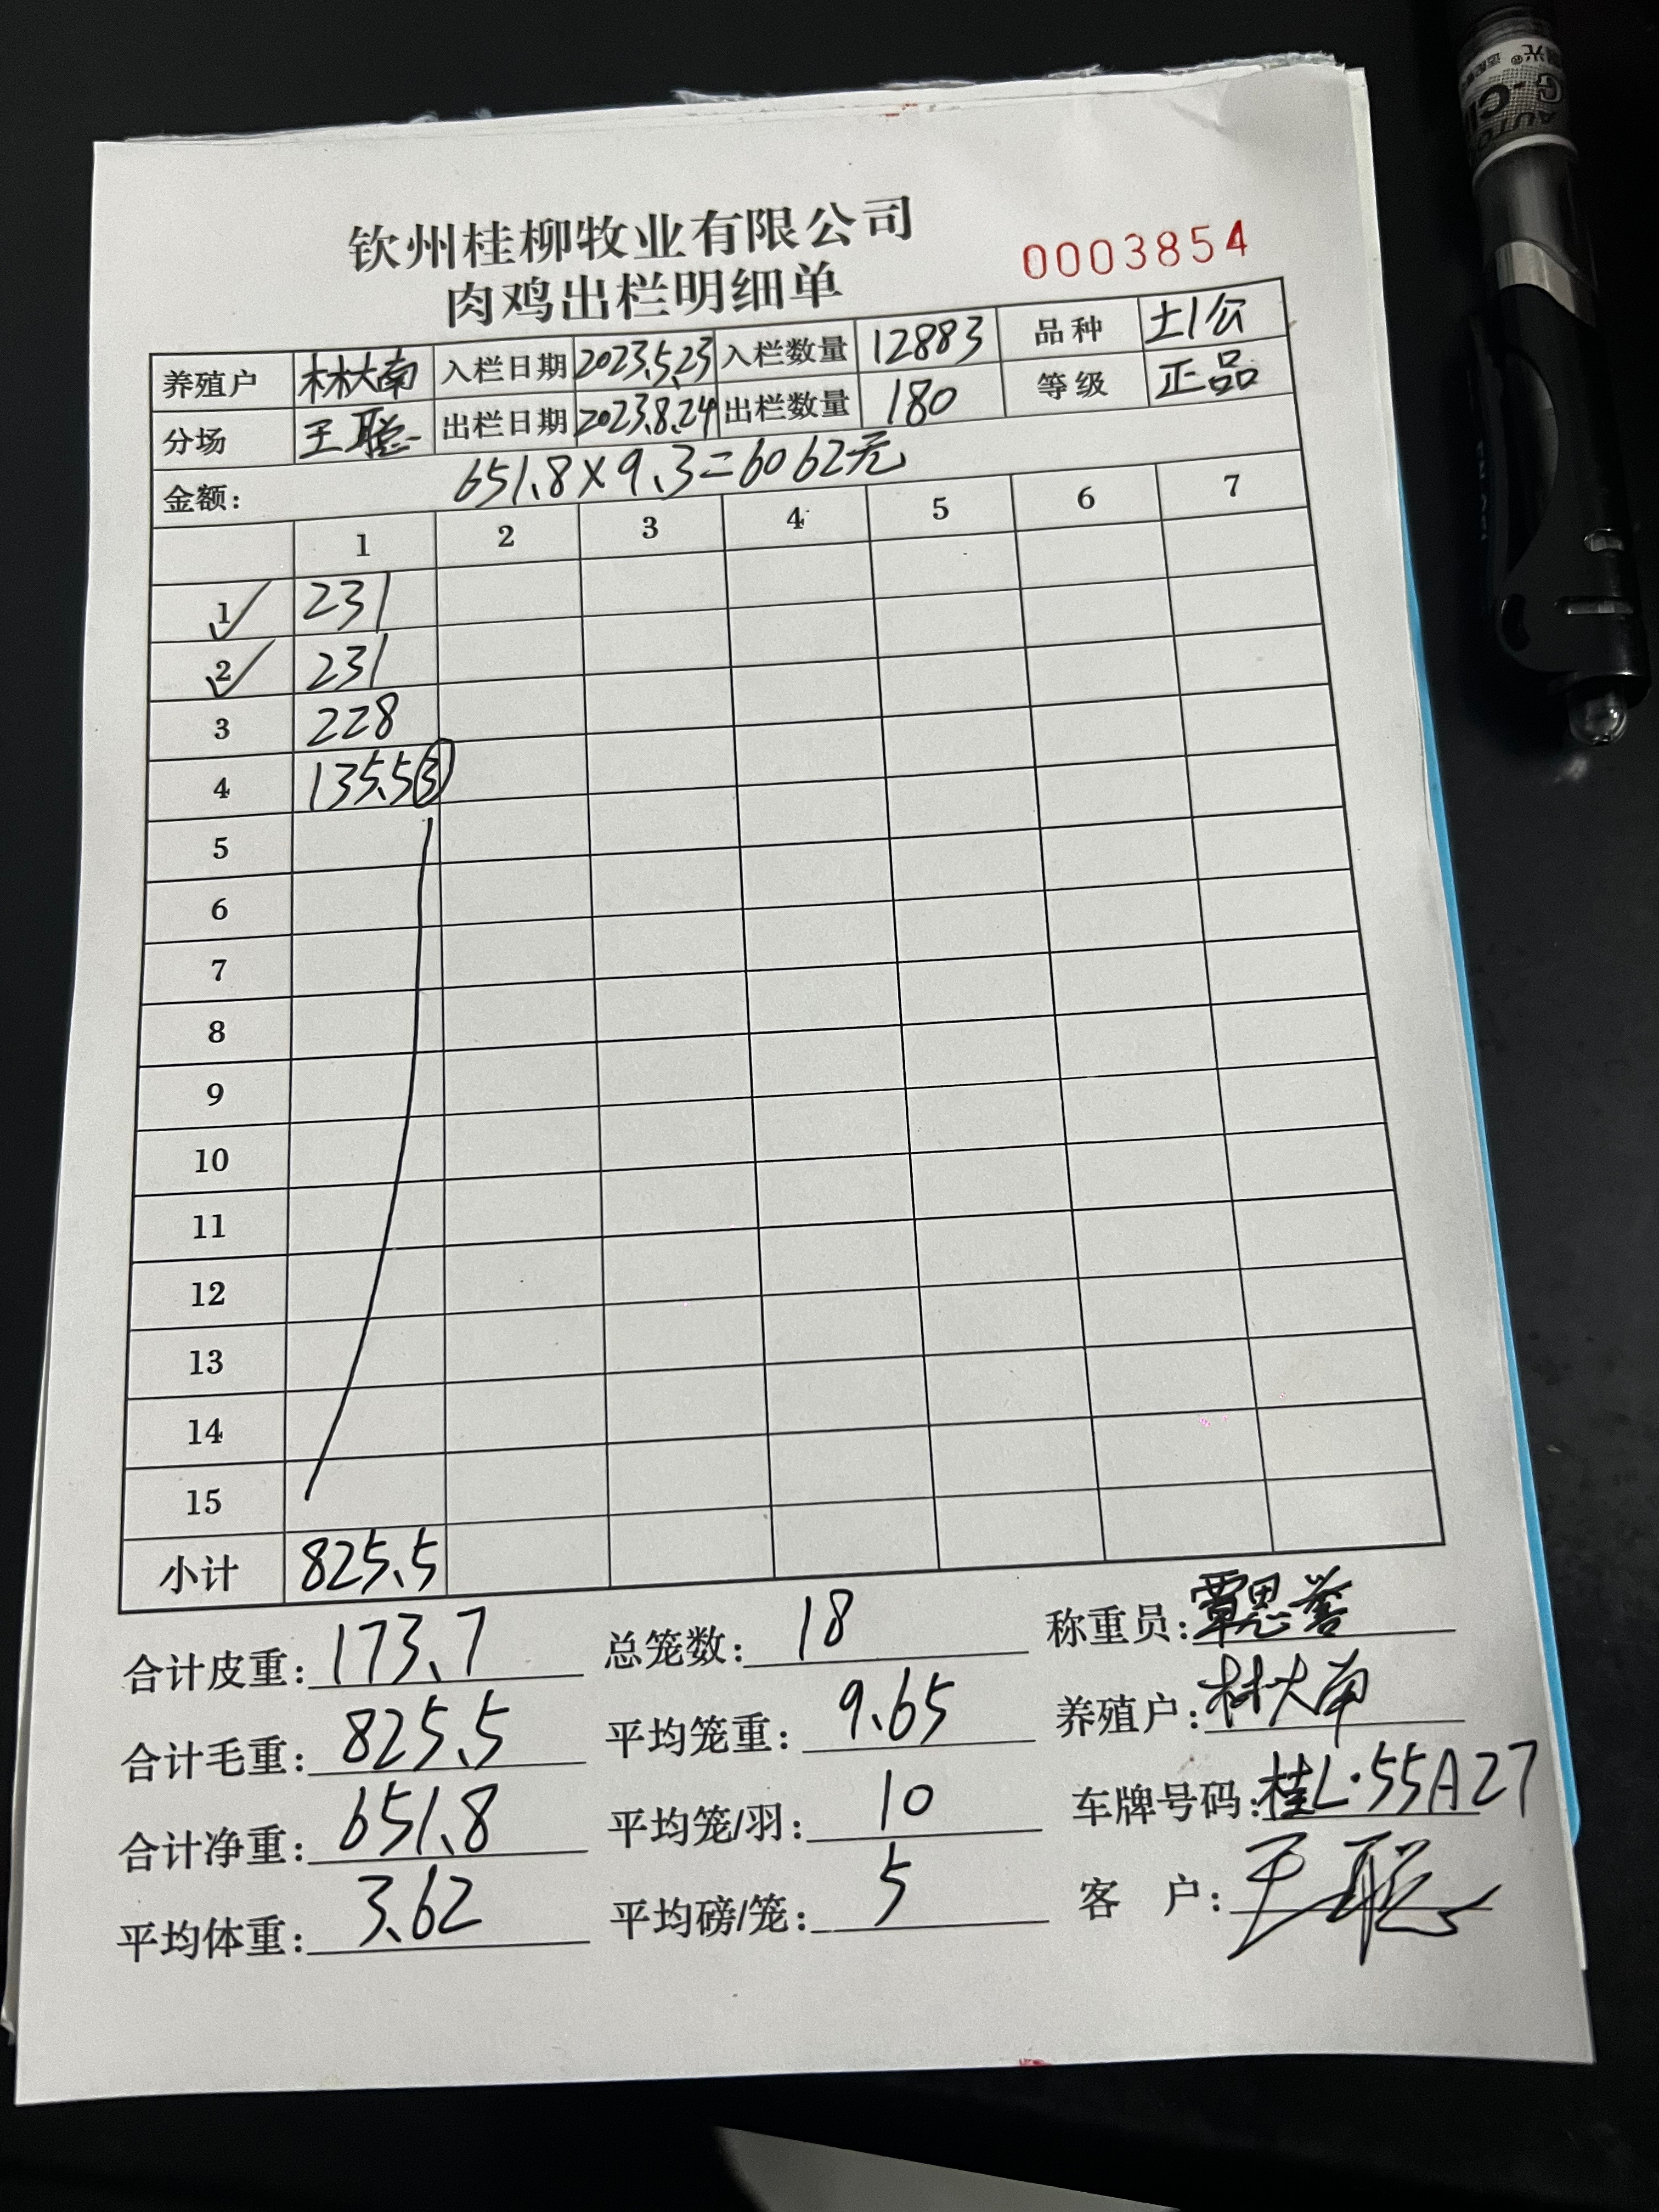 钦州桂柳牧业有限公司
肉鸡出栏明细单
0003854
养殖户 林大南 入栏日期 2023.5.23 入栏数量 12883 品种 土1公
分场 王聪 出栏日期 2023.8.24 出栏数量 180 等级 正品
金额: 651.8×9.3=6062元
1 2 3 4 5 6 7
1 ✓ 231
2 ✓ 231
3 228
4 135.5③
5
6
7
8
9
10
11
12
13
14
15
小计 825.5
合计皮重: 173.7 总笼数: 18 称重员: 覃思誉
合计毛重: 825.5 平均笼重: 9.65 养殖户: 林大南
合计净重: 651.8 平均笼/羽: 10 车牌号码: 桂L·55A27
平均体重: 3.62 平均磅/笼: 5 客 户: 王聪